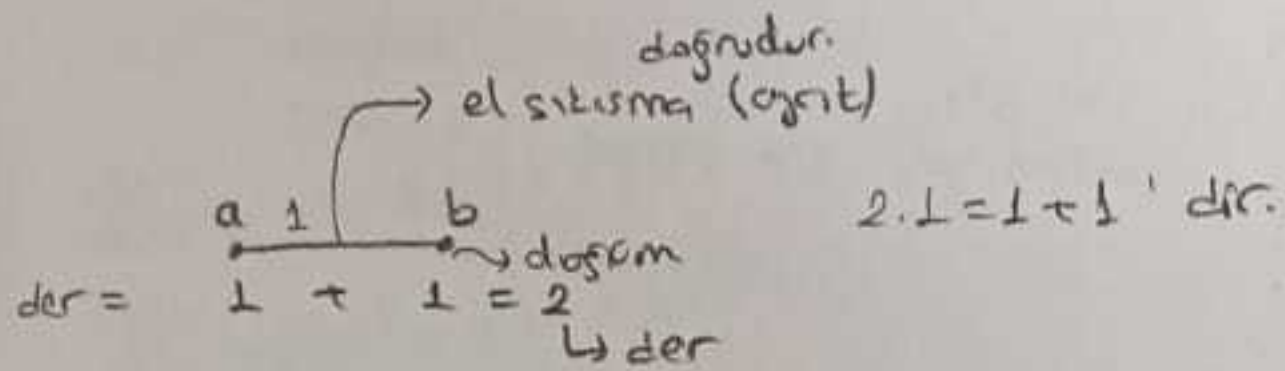 doğrudur.
el sıkısma (ayrıt)
a 1 b
2.1=1+1' dir.
doğum
der = 1 + 1 = 2
↳ der